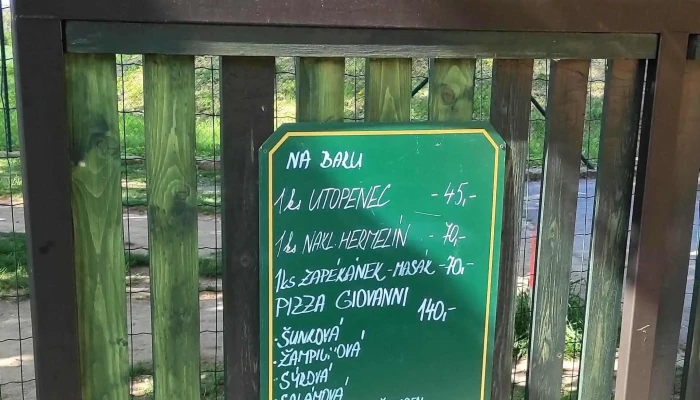 NA BARU
1ks UTOPENEC -45,-
1ks NAKL. HERMELÍN -70,-
1ks ZAPÉKÁNEK-MASÁK-70,-
PIZZA GIOVANNI 140,-
·ŠUNKOVÁ
·ŽAMPILI"OVÁ
·SÝROVÁ
·SALÁMOVÁ